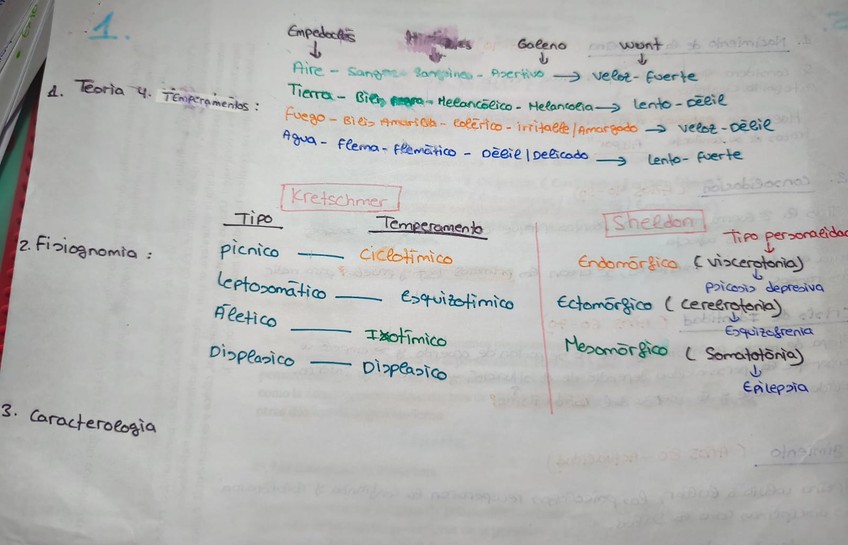 1.
Empedocles Galeno Want
Aire - Sangre - Sanguineo - Asertivo → Veloz - Fuerte
1. Teoria 4. Temperamentos:
Tierra - Bilis negra - Melancólico - Melancolia → Lento - Débil
Fuego - Bilis Amarilla - Colérico - irritable/Amargado → Veloz - Débil
Agua - Flema - Flemático - Débil/Delicado → Lento - Fuerte
Kretschmer
Tipo Temperamento
2. Fisiognomia:
picnico — Ciclotímico
Leptosomático — Esquizotimico
Atletico — Ixotímico
Displasico — Displasico
Sheldon
Tipo personalidad
Endomórfico (viscerotonia)
psicosis depresiva
Ectomórfico (cerebrotonia)
Esquizofrenia
Mesomórfico (Somatotónia)
Epilepsia
3. Caracterologia